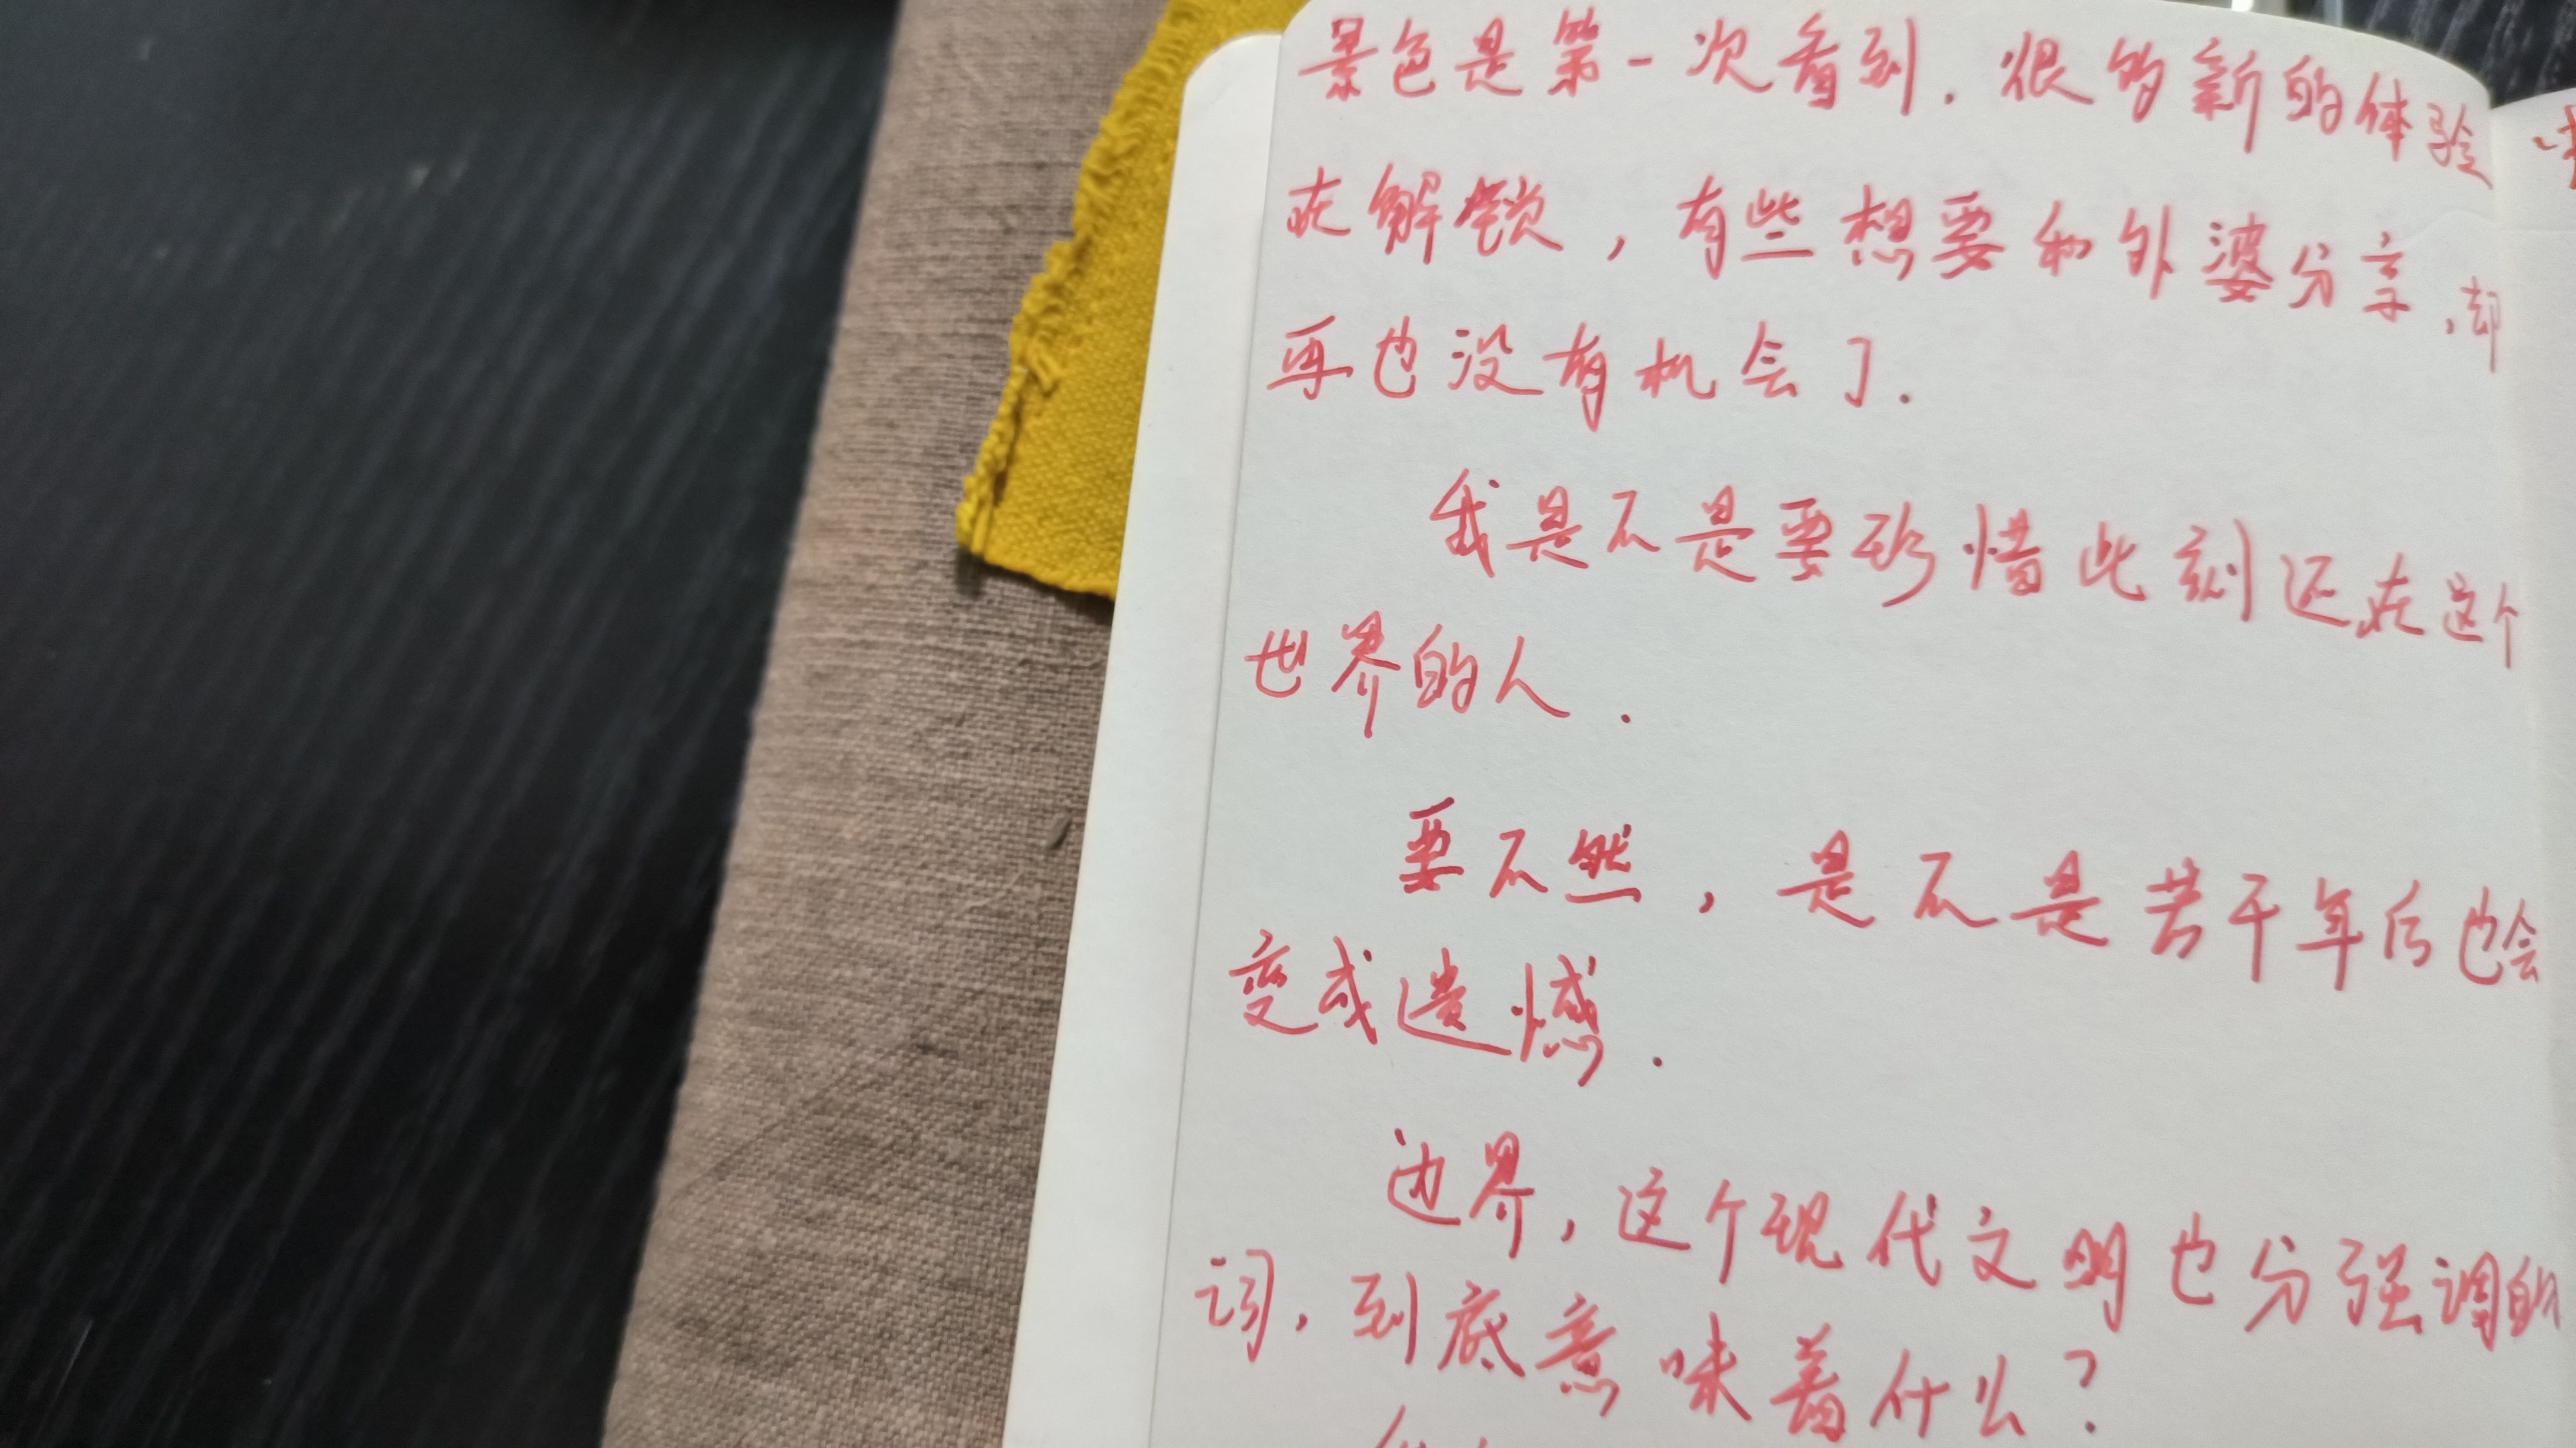 景色是第一次看到.很多新的体验
在解锁,有些想要和外婆分享,却
再也没有机会了.
我是不是要珍惜此刻还在这个
世界的人.
要不然,是不是若干年后也会
变成遗憾.
边界,这个现代文明也分强调的
词,到底意味着什么?